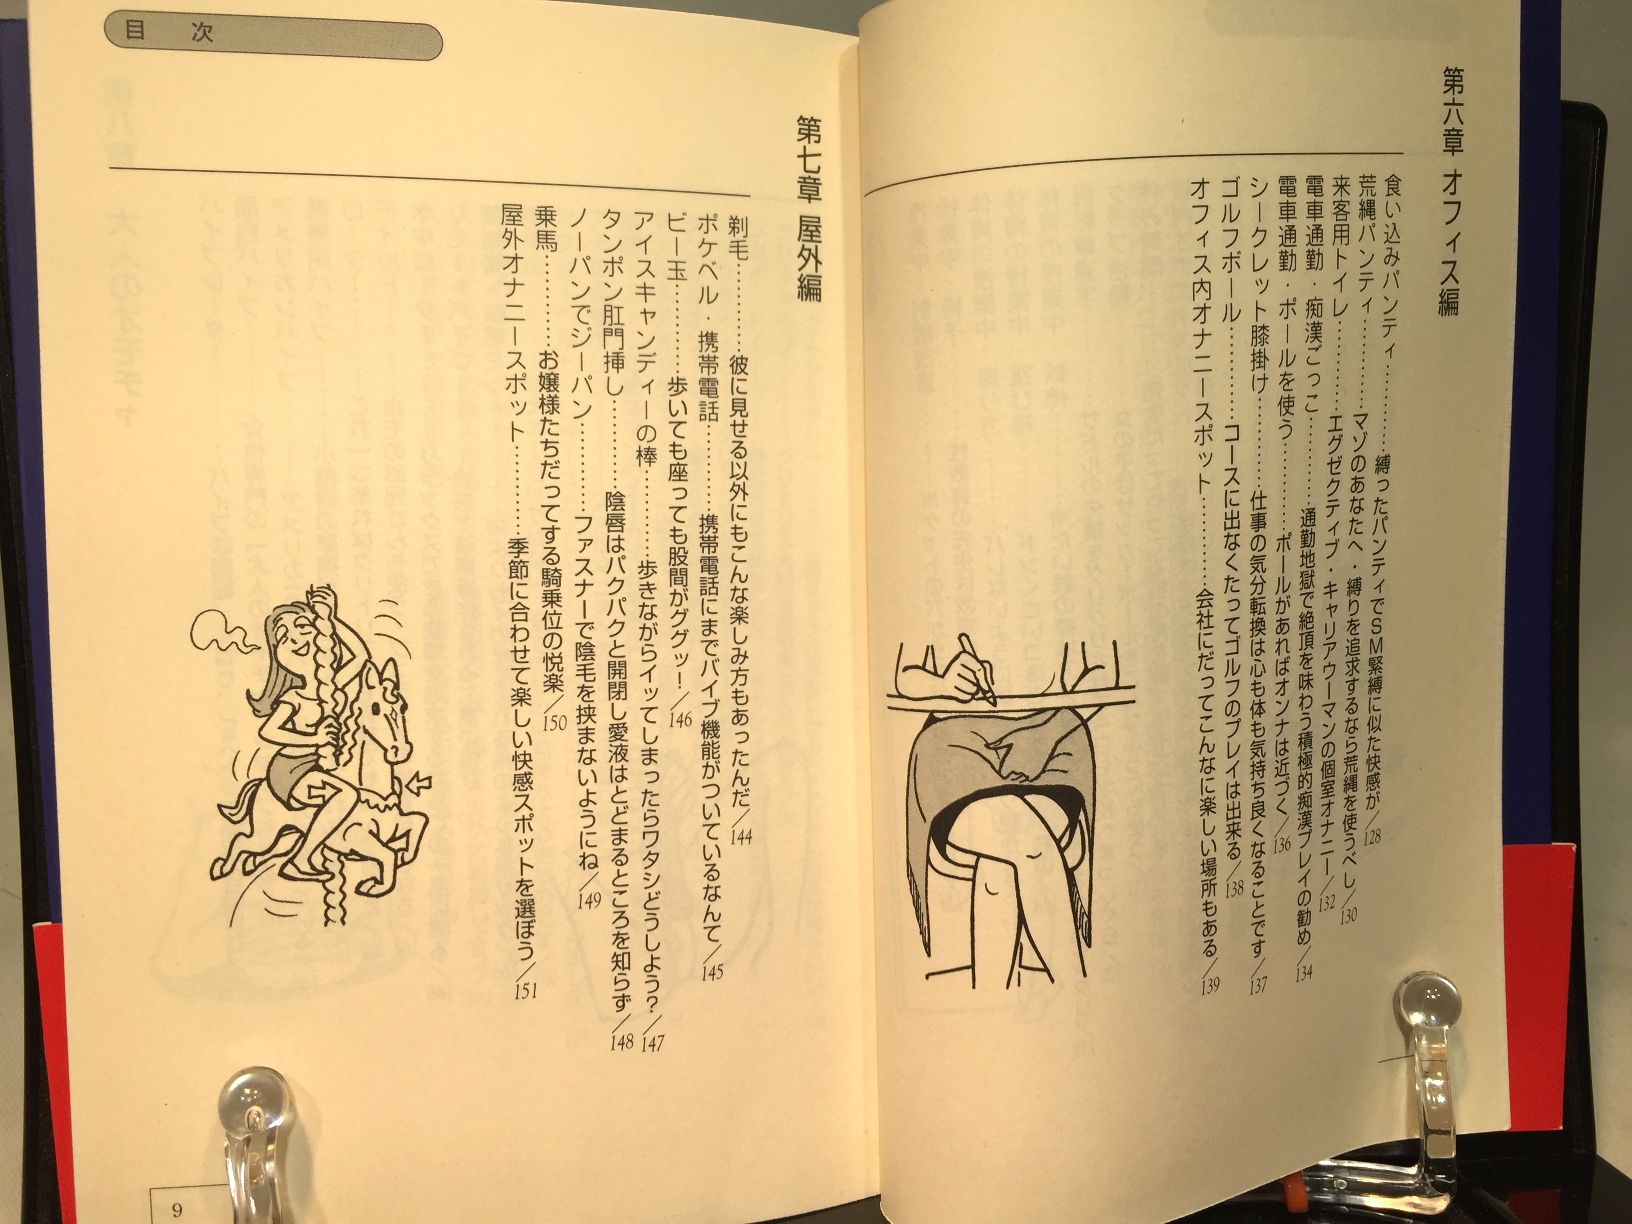 第六章 オフィス編
食い込みパンティ…………縛ったパンティでSM緊縛に似た快感が/128
荒縄パンティ…………マゾのあなたへ・縛りを追求するなら荒縄を使うべし/130
来客用トイレ…………エグゼクティブ・キャリアウーマンの個室オナニー/132
電車通勤・痴漢ごっこ…………通勤地獄で絶頂を味わう積極的痴漢プレイの勧め/134
電車通勤・ポールを使う…………ポールがあればオンナは近づく/136
シークレット膝掛け…………仕事の気分転換は心も体も気持ち良くなることです/137
ゴルフボール…………コースに出なくたってゴルフのプレイは出来る/138
オフィス内オナニースポット…………会社にだってこんなに楽しい場所もある/139
目 次
第七章 屋外編
剃毛…………彼に見せる以外にもこんな楽しみ方もあったんだ/144
ポケベル・携帯電話…………携帯電話にまでバイブ機能がついているなんて/145
ビー玉…………歩いても座っても股間がググッ!/146
アイスキャンディーの棒…………歩きながらイッてしまったらワタシどうしよう?/147
タンポン肛門挿し…………陰唇はパクパクと開閉し愛液はとどまるところを知らず/148
ノーパンでジーパン…………ファスナーで陰毛を挟まないようにね/149
乗馬…………お嬢様たちだってする騎乗位の悦楽/150
屋外オナニースポット…………季節に合わせて楽しい快感スポットを選ぼう/151
9